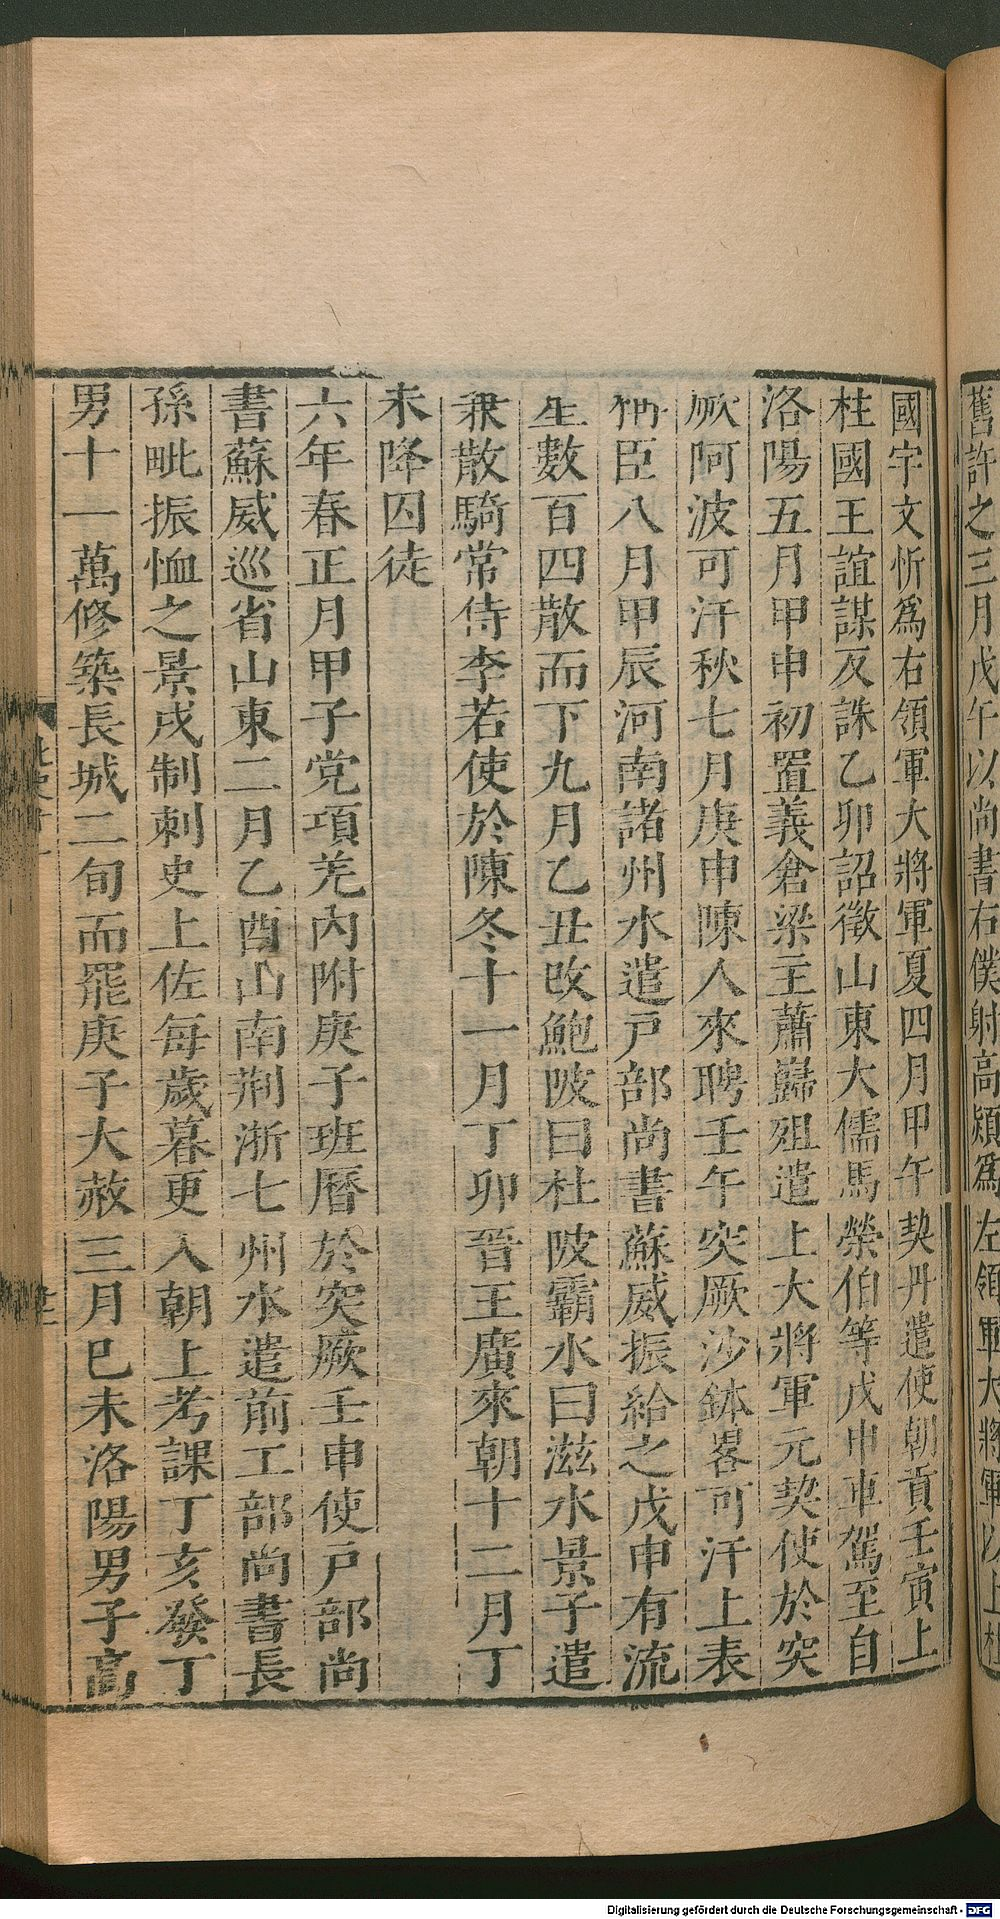 舊許之三月戊午以尚書右僕射高熲爲左領軍大將軍以上柱
國宇文忻爲右領軍大將軍夏四月甲午契丹遣使朝貢壬寅上
柱國王誼謀反誅乙卯詔徵山東大儒馬榮伯等戊申車駕至自
洛陽五月甲申初置義倉梁主蕭巋殂遣上大將軍元契使於突
厥阿波可汗秋七月庚申陳人來聘壬午突厥沙鉢畧可汗上表
稱臣八月甲辰河南諸州水遣戸部尚書蘇威振給之戊申有流
星數百四散而下九月乙丑改鮑陂曰杜陂霸水曰滋水景子遣
兼散騎常侍李若使於陳冬十一月丁卯晉王廣來朝十二月丁
未降囚徒
六年春正月甲子党項羌内附庚子班曆於突厥壬申使戸部尚
書蘇威巡省山東二月乙酉山南荆淅七州水遣前工部尚書長
孫毗振恤之景戌制刺史上佐每歲暮更入朝上考課丁亥發丁
男十一萬修築長城二旬而罷庚子大赦三月巳未洛陽男子高
Digitalisierung gefördert durch die Deutsche Forschungsgemeinschaft - DFG